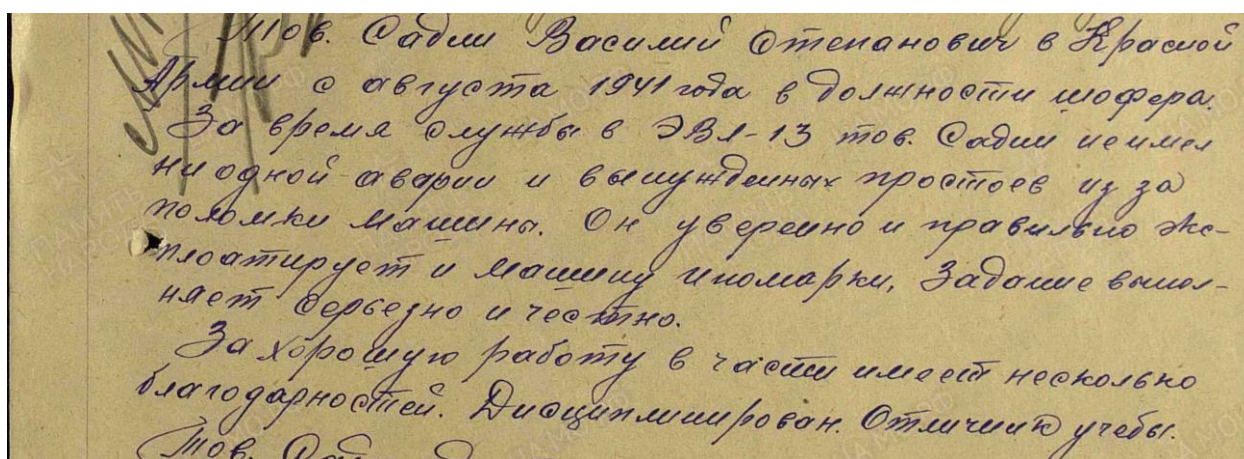 Тов. Садии Василий Степанович в Красной
Армии с августа 1941 года в должности шофера.
За время службы в ЭВЛ-13 тов. Садии не имел
ни одной аварии и вынужденных простоев из за
поломки машины. Он уверенно и правильно экс-
плоатирует и машину иномарки, Задание выпол-
няет серьезно и честно.
За хорошую работу в части имеет несколько
благодарностей. Дисциплинирован. Отличник учебы.
Тов.